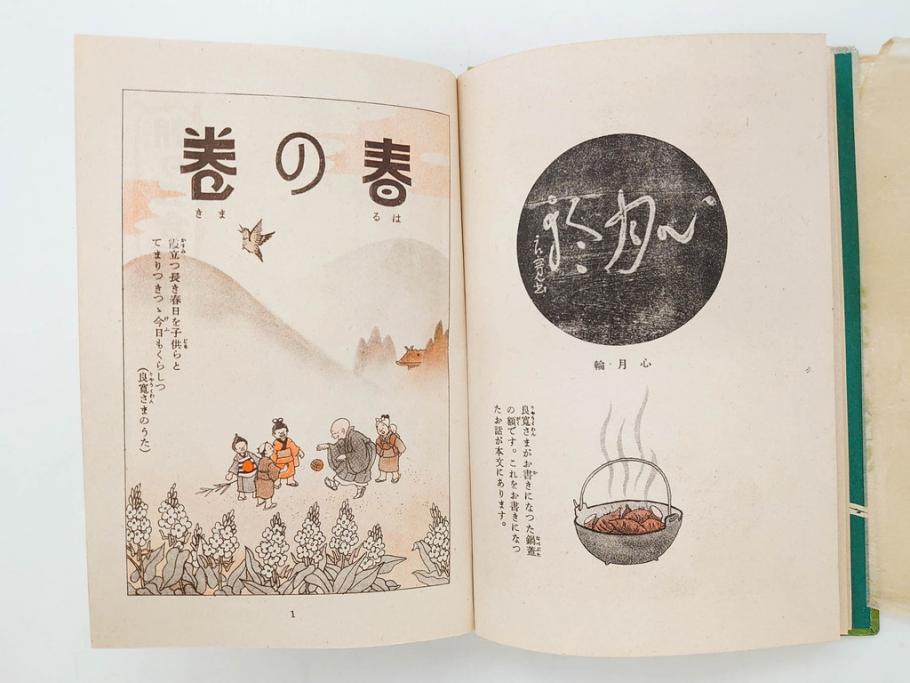 心月輪
良寛書
心月輪
良寛さまがお書きになつた鍋蓋
の額です。これをお書きになつ
たお話が本文にあります。
春の巻
はる まき
霞立つ長き春日を子供らと
てまりつきつゝ今日もくらしつ
(良寛さまのうた)
1